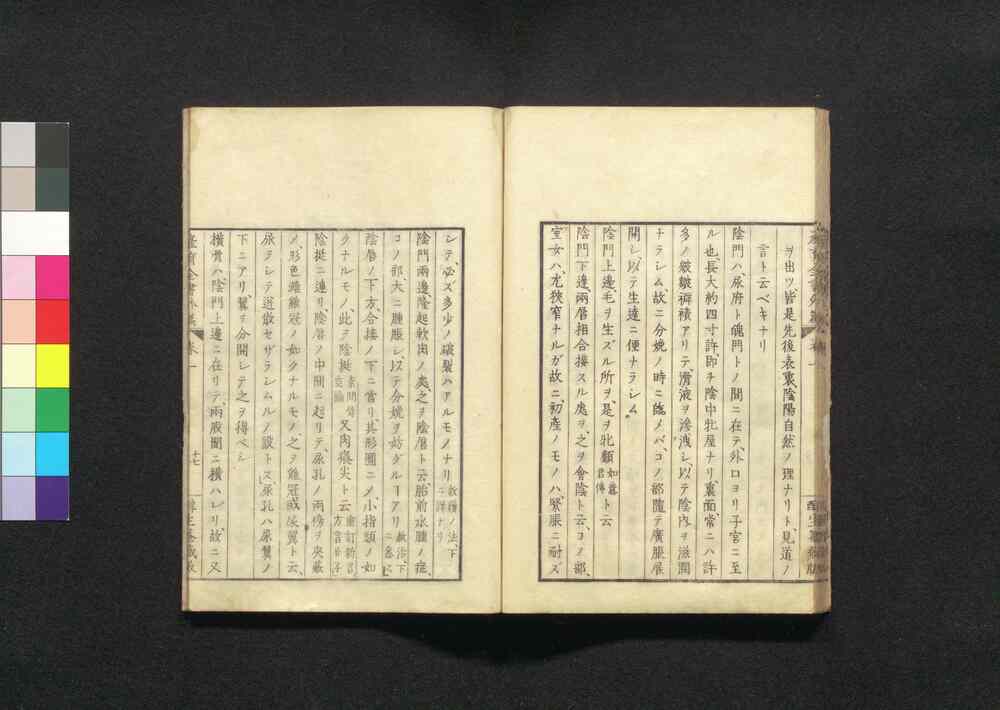 ヲ出ツ、皆是先後表裏陰陽自然ノ理ナリト、見道ノ
言ト云ベキナリ
陰門ハ、尿府ト魄門トノ間ニ在テ、外口ヨリ子宮ニ至
ル也、長大約四寸許、即チ陰中牝屋ナリ、裏面常ニハ許
多ノ皺皺褥積アリテ、滑液ヲ滲洩シ、以テ陰内ヲ滋潤
ナラシム、故ニ分娩ノ時ニ臨メバ、コノ部隨テ廣脹展
開シ、以テ生達ニ便ナラシム
陰門上邊、毛ヲ生ズル所ヲ、是ヲ牝顙ト云
陰門下邊、兩唇相合接スル處ヲ、之ヲ會陰ト云、コノ部、
室女ハ、尤狹窄ナルガ故ニ、初產ノモノハ、緊脹ニ耐ズ
シテ、必ズ多少ノ破裂ハアルモノナリ 救護ノ法、下ニ詳ナリ
陰門兩邊、隆起軟肉ノ處、之ヲ陰唇ト云、胎前水腫ノ症、
コノ部大ニ腫脹シ、以テ分娩ヲ妨グルヿアリ 救治下ニ
陰唇ノ下方、合接ノ下ニ當リ、其形圓ニメ、小指頭ノ如
クナルモノ、此ヲ陰挺 又肉瘊尖ト云
陰挺ニ連リ、陰唇ノ中間ニ起リテ、尿孔ノ兩傍ヲ夾蔽
メ、形色雄雞冠ノ如クナルモノ、之ヲ雞冠或尿翼ト云、
尿ヲシテ迸散セザラシムルノ設トス、尿孔ハ尿翼ノ
下ニアリ、翼ヲ分開シテ之ヲ得ベシ
橫骨ハ、陰門上邊ニ在リテ、兩股間ニ橫ハレリ、故ニ又
卷一
十七